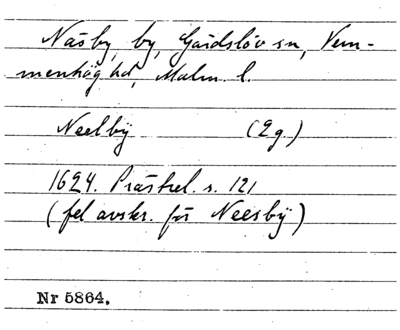 Näsby, by, Gärdslöv sn, Vem-
menhög hd, Malm. l.
Neelbÿ (2 g.)
1624. Prästrel. s. 121
(fel avskr. för Neesbÿ)
Nr 5864.